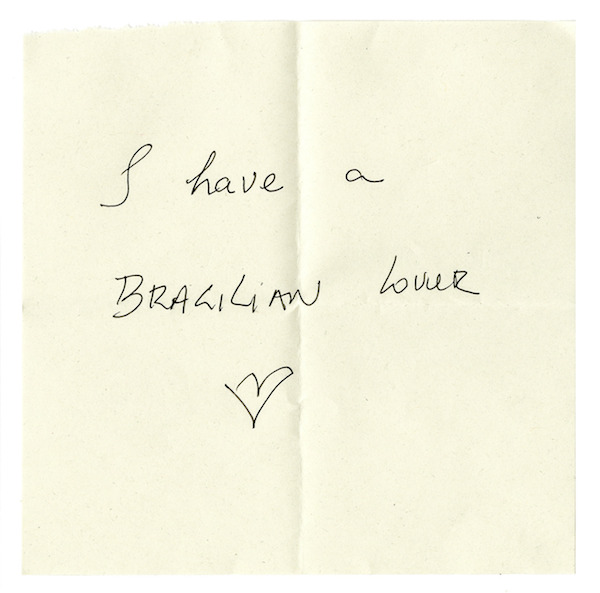 I have a
BRAZILIAN LOVER